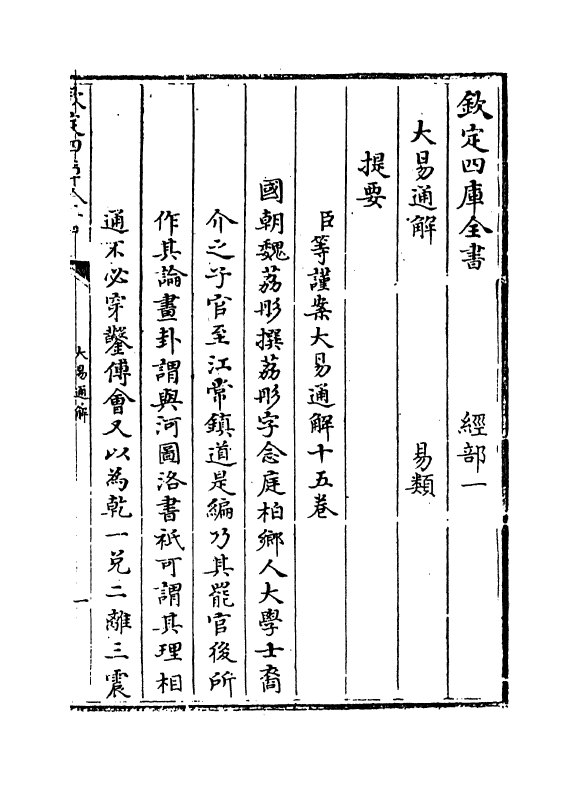 欽定四庫全書　經部一
大易通解　易類
提要
臣等謹案大易通解十五卷
國朝魏荔彤撰荔彤字念庭柏鄉人大學士裔
介之子官至江常鎮道是編乃其罷官後所
作其論畫卦謂與河圖洛書祗可謂其理相
通不必穿鑿傅會又以為乾一兌二離三震
欽定四庫全書
大易通解
一